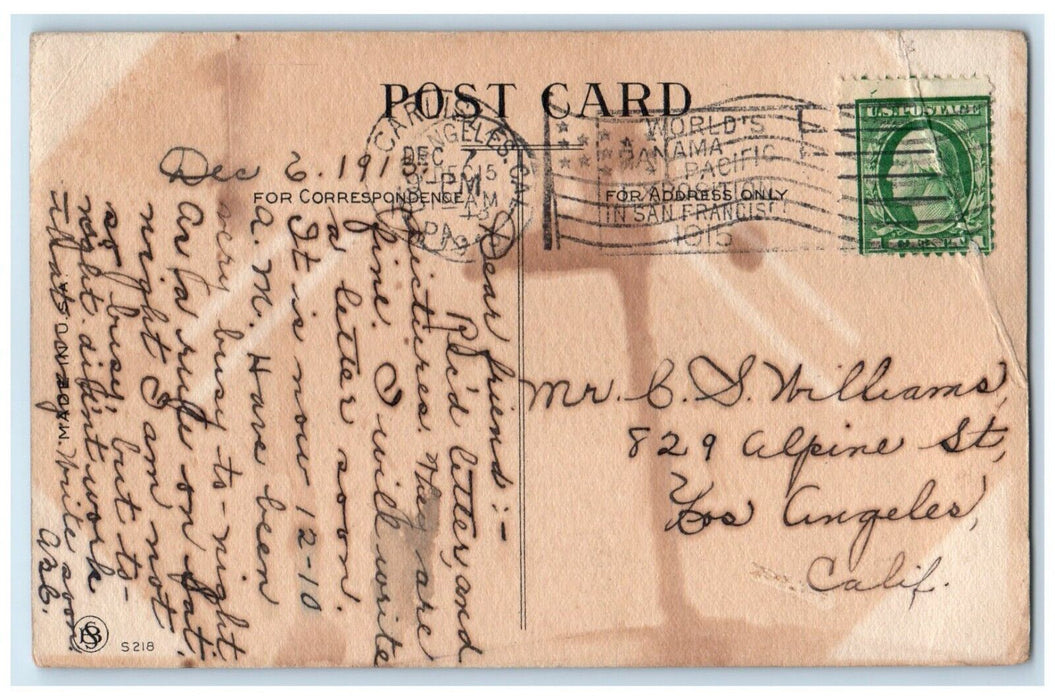 POST CARD
FOR CORRESPONDENCE
FOR ADDRESS ONLY
U.S. POSTAGE
WORLD'S
PANAMA
PACIFIC
EXPOSITION
IN SAN FRANCISCO
1915
LOS ANGELES, CAL.
DEC 7
PA.
Dec 6. 1915.
Dear friend:-
Rc'd letter, and
pictures. They are
fine. I will write
a letter soon.
It is now 12-10
a. m. Have been
very busy to-night.
As a rule on Sat.
night I am not
so busy, but to-
night didn't work
that way. Write soon.
Mr. C. S. Williams,
829 Alpine St,
Los Angeles,
Calif.
MADE IN U.S.A.
S 218